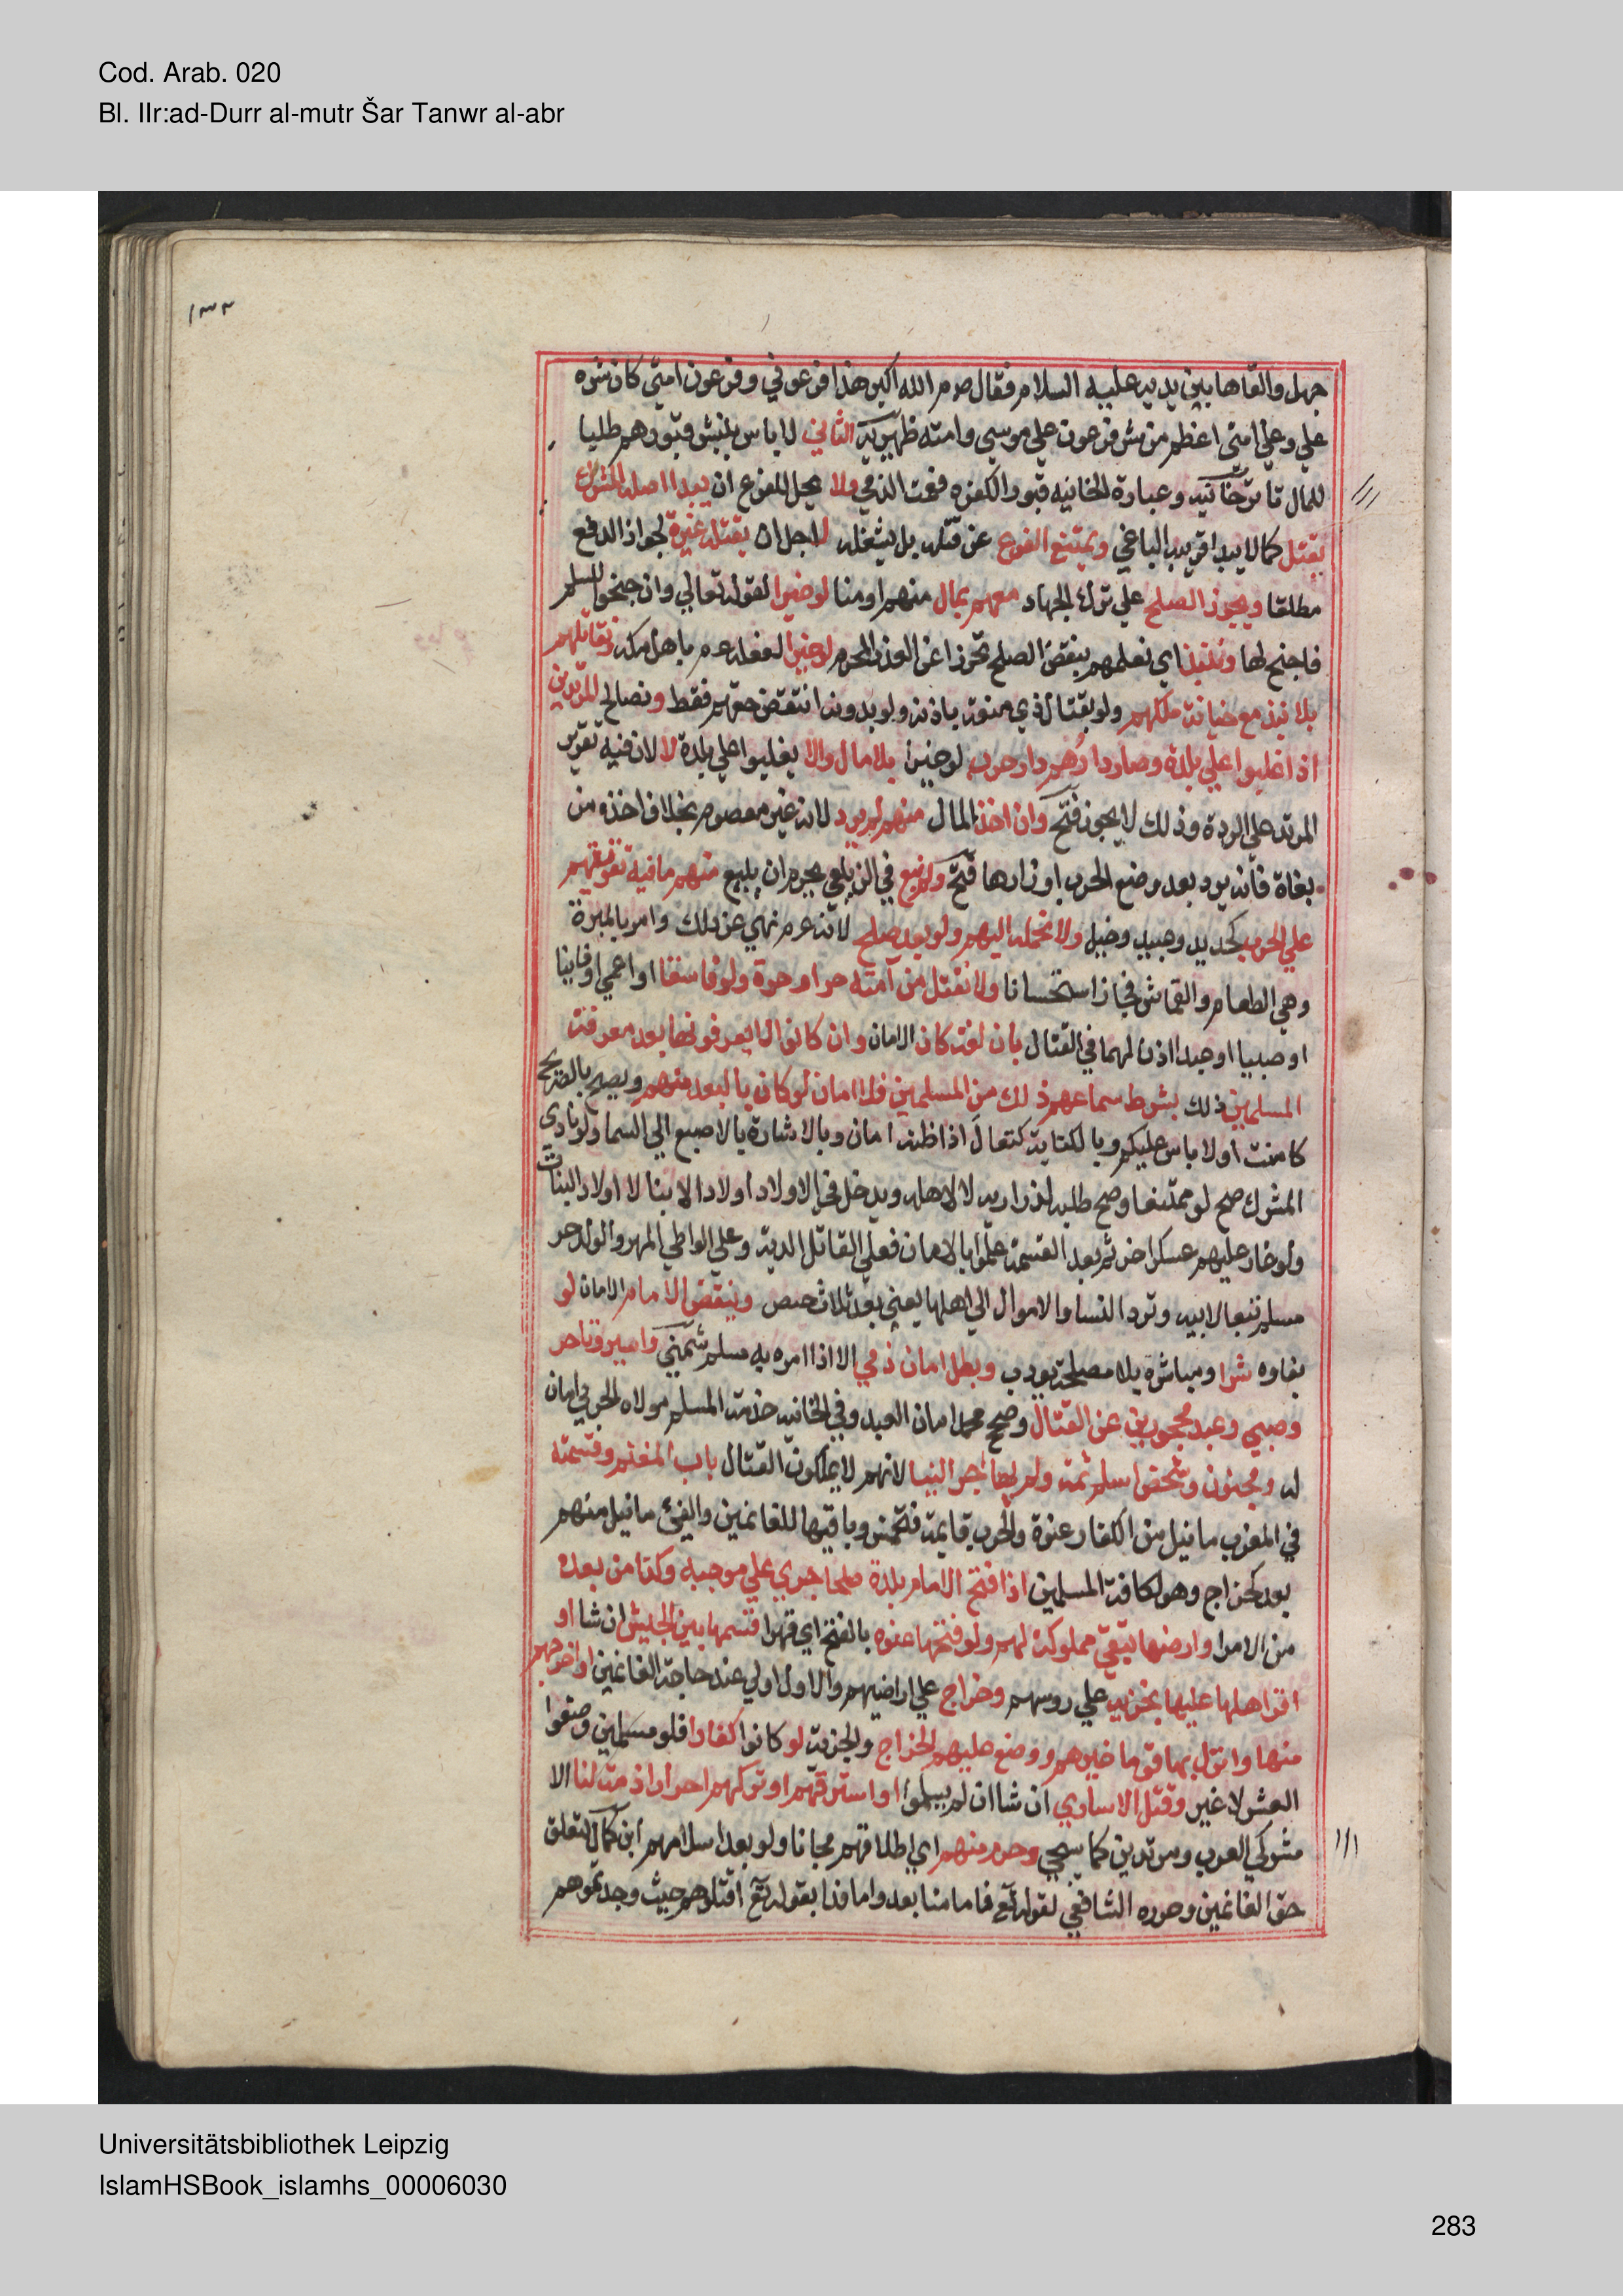 Cod. Arab. 020
Bl. IIr:ad-Durr al-mutr Šar Tanwr al-abr
١٣٣
جهل والقاها بين يديه عليه السلام فقال صم الله اكبر هذا فرعوني وفرعون امتي كان شره
علي وعلي امتي اعظم من شر فرعون علي موسي وامته ظهيريه الثاني لا باس بنبش قبورهم طلبا
للمال تاترخانيه وعبارة الخانيه قبور الكفره فعمت الذمي ولا يحل للفرع ان يبدا اصله المشرك
بقتل كما لا يبدا قريبه الباغي ويمتنع الفرع عن قتله بل يشغله لاجل ان يقتله غيره لجواز الدفع
مطلقا ويجوز الصلح علي ترك الجهاد معهم بمال منهم او منا لو خيرا لقوله تعالي وان جنحوا للسلم
فاجنح لها وننبذ اي نعلمهم بنقض الصلح تحرزا عن الغدر المحرم لو خيرا لفعله عم باهل مكه ونقاتلهم
بلا نبذ مع خيانة ملكهم ولو بقتال ذي منعه باذنه ولو بدونه انتقض حقهم فقط ونصالح المرتدين
اذا غلبوا علي بلدة وصار دارهم دار حرب لو خيرا بلا مال والا يغلبوا علي بلدة لا لان فيه تقرير
المرتد علي الردة وذلك لا يجوز فتح وان اخذ المال منهم لم يرد لانه غير معصوم بخلاف اخذه من
بغاة فانه يرد بعد وضع الحرب اوزارها فتح ولم نبع في الزيلعي يحرم ان يبيع منهم ما فيه تقويتهم
علي الحرب كحديد وعبيد وخيل ولا نحمله اليهم ولو بعد صلح لانه عم نهي عن ذلك وامر بالميرة
وهي الطعام والقماش فجاز استحسانا ولا نقتل من آمنه حر او حرة ولو فاسقا او اعمي او فانيا
او صبيا او عبدا اذن لهما في القتال باي لغة كان الامان وان كانوا لا يعرفونها بعد معرفة
المسلمين ذلك بشرط سماعهم ذلك من المسلمين فلا امان لو كان بالبعد منهم ويصح بالصريح
كامنت او لا باس عليكم وبالكناية كتعال اذا ظنه امان وبالاشارة بالاصبع الي السما ولو نادي
المشرك صح لو ممتنعا وصح طلبه لذراريه لا لاهله ويدخل في الاولاد اولاد الابنا لا اولاد البنات
ولو غار عليهم عسكر اخر ثم بعد القسمة علموا بالامان فعلي القاتل الدية وعلي الواطي المهر والولد حر
مسلم تبعا لابيه وترد النسا والاموال الي اهلها يعني بعد ثلاث حيض وينقض الامام الامان لو
بقاوه شرا ومباشره بلا مصلحة يودب وبطل امان ذمي الا اذا امره به مسلم شمني واسير وتاجر
وصبي وعبد محجورين عن القتال وصحح محمد امان العبد وفي الخانيه خدمة المسلم مولاه الحربي امان
له ومجنون وشخص اسلم ثمة ولم يهاجر الينا لانهم لا يملكون القتال باب المغنم وقسمته
في المغرب ما نيل من الكفار عنوة والحرب قايمة فتخمس وباقيها للغانمين والفيئ ما نيل منهم
بعد كخراج وهو لكافة المسلمين اذا فتح الامام بلدة صلحا جري علي موجبه وكذا من بعده
من الامرا وارضها تبقي مملوكة لهم ولو فتحها عنوه بالفتح اي قهرا قسمها بين الجيش ان شا او
اقر اهلها عليها بجزية علي روسهم وخراج علي اراضيهم والاول اولي عند حاجة الغانمين او اخرجهم
منها وانزل بها قوما غيرهم ووضع عليهم الخراج والجزية لو كانوا كفارا فلو مسلمين وضعوا
العشر لا غير وقتل الاساري ان شا ان لم يسلموا او استرقهم او تركهم احرارا ذمة لنا الا
مشركي العرب ومرتدين كما سيجي وحرم منهم اي اطلاقهم مجانا ولو بعد اسلامهم ابن كمال لتعلق
حق الغانمين وجوزه الشافعي لقوله تع فاما منا بعد واما فدا بقوله تع اقتلوهم حيث وجدتموهم
Universitätsbibliothek Leipzig
IslamHSBook_islamhs_00006030
283